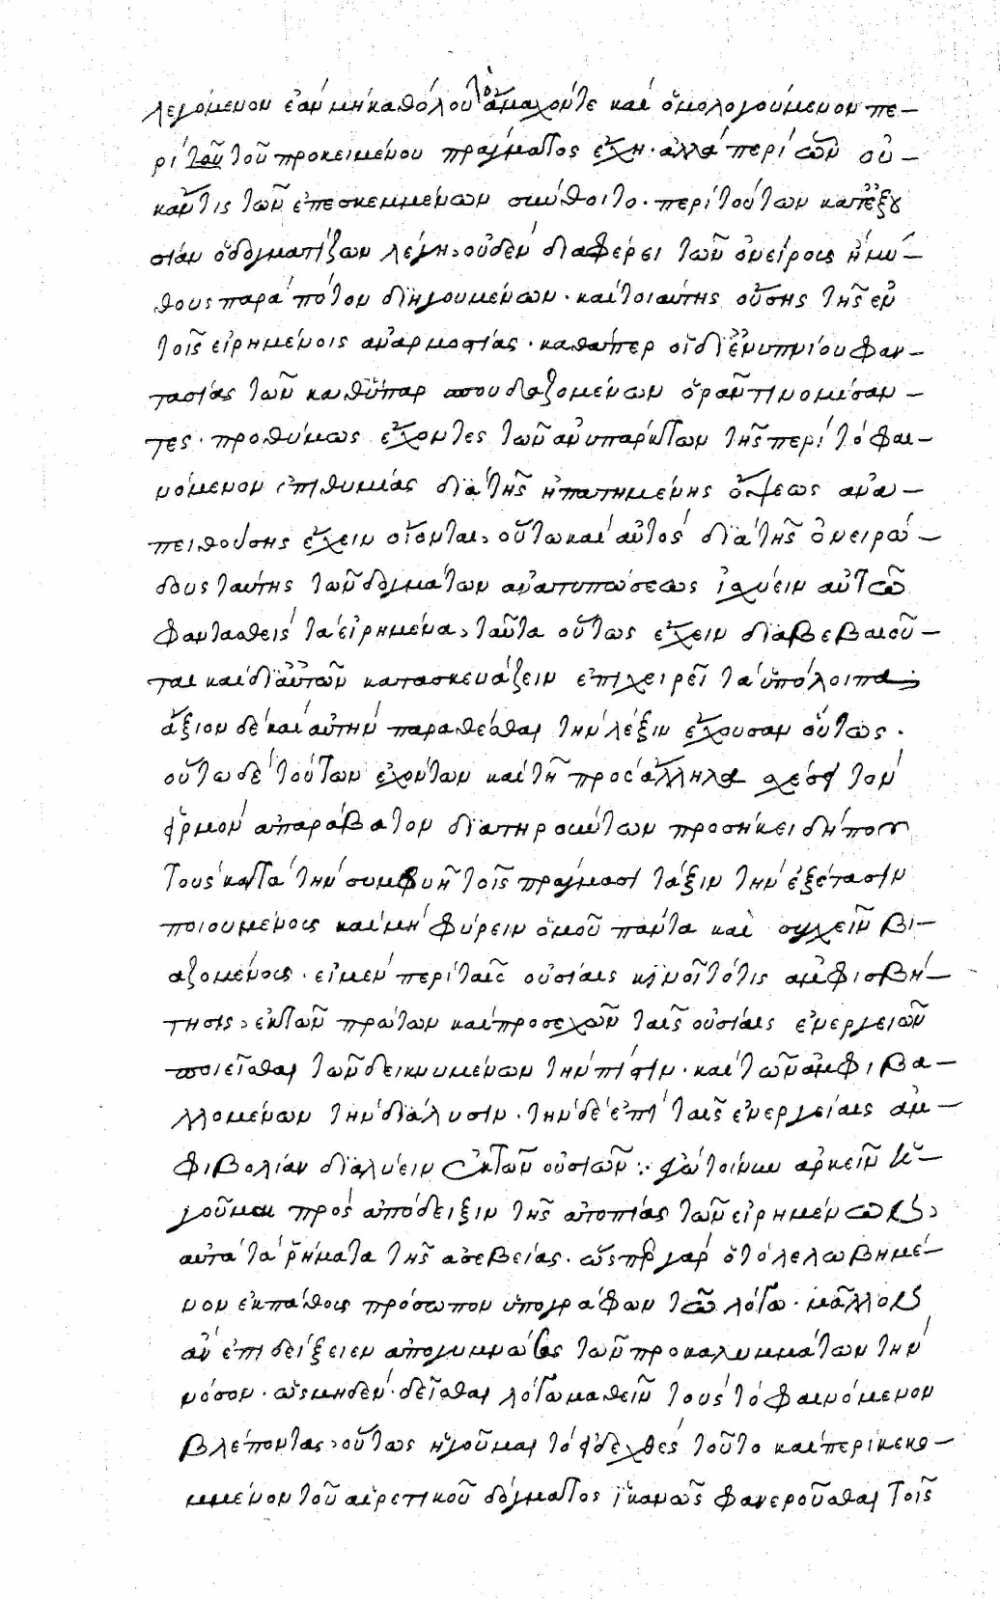 λεγόμενον ἐὰν μὴ καθόλου τὸ ἄμαχόν τε καὶ ὁμολογούμενον πε-
ρὶ τοῦ τοῦ προκειμένου πράγματος ἔχῃ· ἀλλὰ περὶ ὧν οὐ-
κ ἄν τις τῶν ἐπεσκεμμένων σύνθοιτο· περὶ τούτων κατ' ἐξου
σίαν ὁ δογματίζων λέγῃ, οὐδὲν διαφέρει τῶν ὀνείρους ἢ μύ-
θους παρὰ πότον διηγουμένων· καὶ τοιαύτης οὔσης τῆς ἐν
τοῖς εἰρημένοις ἀναρμοστίας· καθάπερ οἱ δι' ἐνυπνίου φαν-
τασίας τῶν καθ' ὕπαρ σπουδαζομένων ὁρᾶν τι νομίσαν-
τες· προθύμως ἔχοντες τῶν ἀνυπάρκτων τῆς περὶ τὸ φαι-
νόμενον ἐπιθυμίας διὰ τῆς ἠπατημένης ὄψεως ἀνα-
πειθούσης ἔχειν οἴονται, οὕτω καὶ αὐτὸς διὰ τῆς ὀνειρώ-
δους ταύτης τῶν δογμάτων ἀνατυπώσεως ἰσχύειν αὐτῶ
φαντασθεὶς τὰ εἰρημένα, ταῦτα οὕτως ἔχειν διαβεβαιοῦ-
ται καὶ δι' αὐτῶν κατασκευάζειν ἐπιχειρεῖ τὰ ὑπόλοιπα;
ἄξιον δὲ καὶ αὐτὴν παραθέσθαι τὴν λέξιν ἔχουσαν οὕτως.
οὕτω δὲ τούτων ἐχόντων καὶ τῇ πρὸς ἄλληλα σχέσει τὸν
εἱρμὸν ἀπαράβατον διατηρούντων προσήκει δήπου
τοὺς κατὰ τὴν συμφυῆ τοῖς πράγμασι τάξιν τὴν ἐξέτασιν
ποιουμένους καὶ μὴ φύρειν ὁμοῦ πάντα καὶ συγχεῖν βι-
αζομένους· εἰ μὲν περὶ ταῖς οὐσίαις κινοῖτό τις ἀμφισβή-
τησις, ἐκ τῶν πρώτων καὶ προσεχῶν ταῖς οὐσίαις ἐνεργειῶν
ποιεῖσθαι τῶν δεικνυμένων τὴν πίστιν· καὶ τῶν ἀμφιβα-
λλομένων τὴν διάλυσιν· τὴν δὲ ἐπὶ ταῖς ἐνεργείαις ἀμ-
φιβολίαν διαλύειν ἐκ τῶν οὐσιῶν: ἐγὼ τοίνυν ἀρκεῖν ἡ-
γοῦμαι πρὸς ἀπόδειξιν τῆς ἀτοπίας τῶν εἰρημένων καὶ,
αὐτὰ τὰ ῥήματα τῆς ἀσεβείας· ὥσπερ γὰρ ὅ τὸ λελωβημέ-
νον ἐκ πάθους πρόσωπον ὑπογράφων τῶ λόγω· μᾶλλον
ἂν ἐπιδείξειεν ἀπογυμνώσας τῶν προκαλυμμάτων τὴν
νόσον· ὡς μηδὲν δεῖσθαι λόγω μαθεῖν τοὺς τὸ φαινόμενον
βλέποντας, οὕτως ἡγοῦμαι τὸ εἰδεχθὲς τοῦτο καὶ περικεκο-
μμένον τοῦ αἱρετικοῦ δόγματος ἱκανῶς φανεροῦσθαι τοῖς